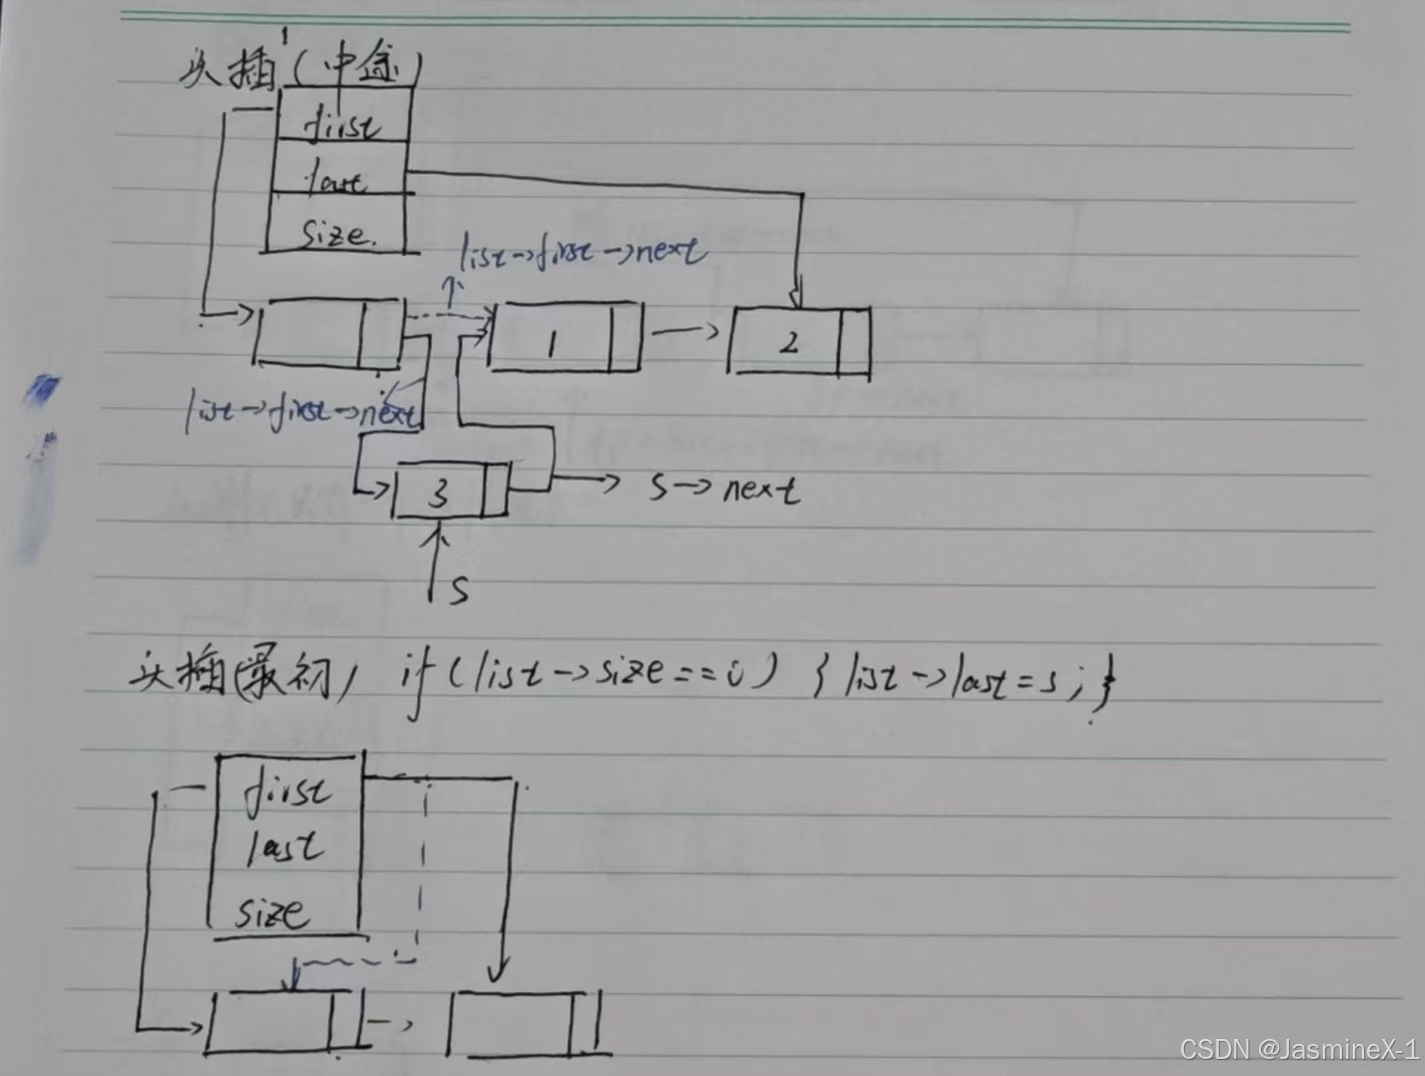 头插(中途)
first
last
size.
list→first→next
1
2
list→first→next
3
s→next
s
头插(最初) if(list→size==0) {list→last=s;}
first
last
size
CSDN @JasmineX-1